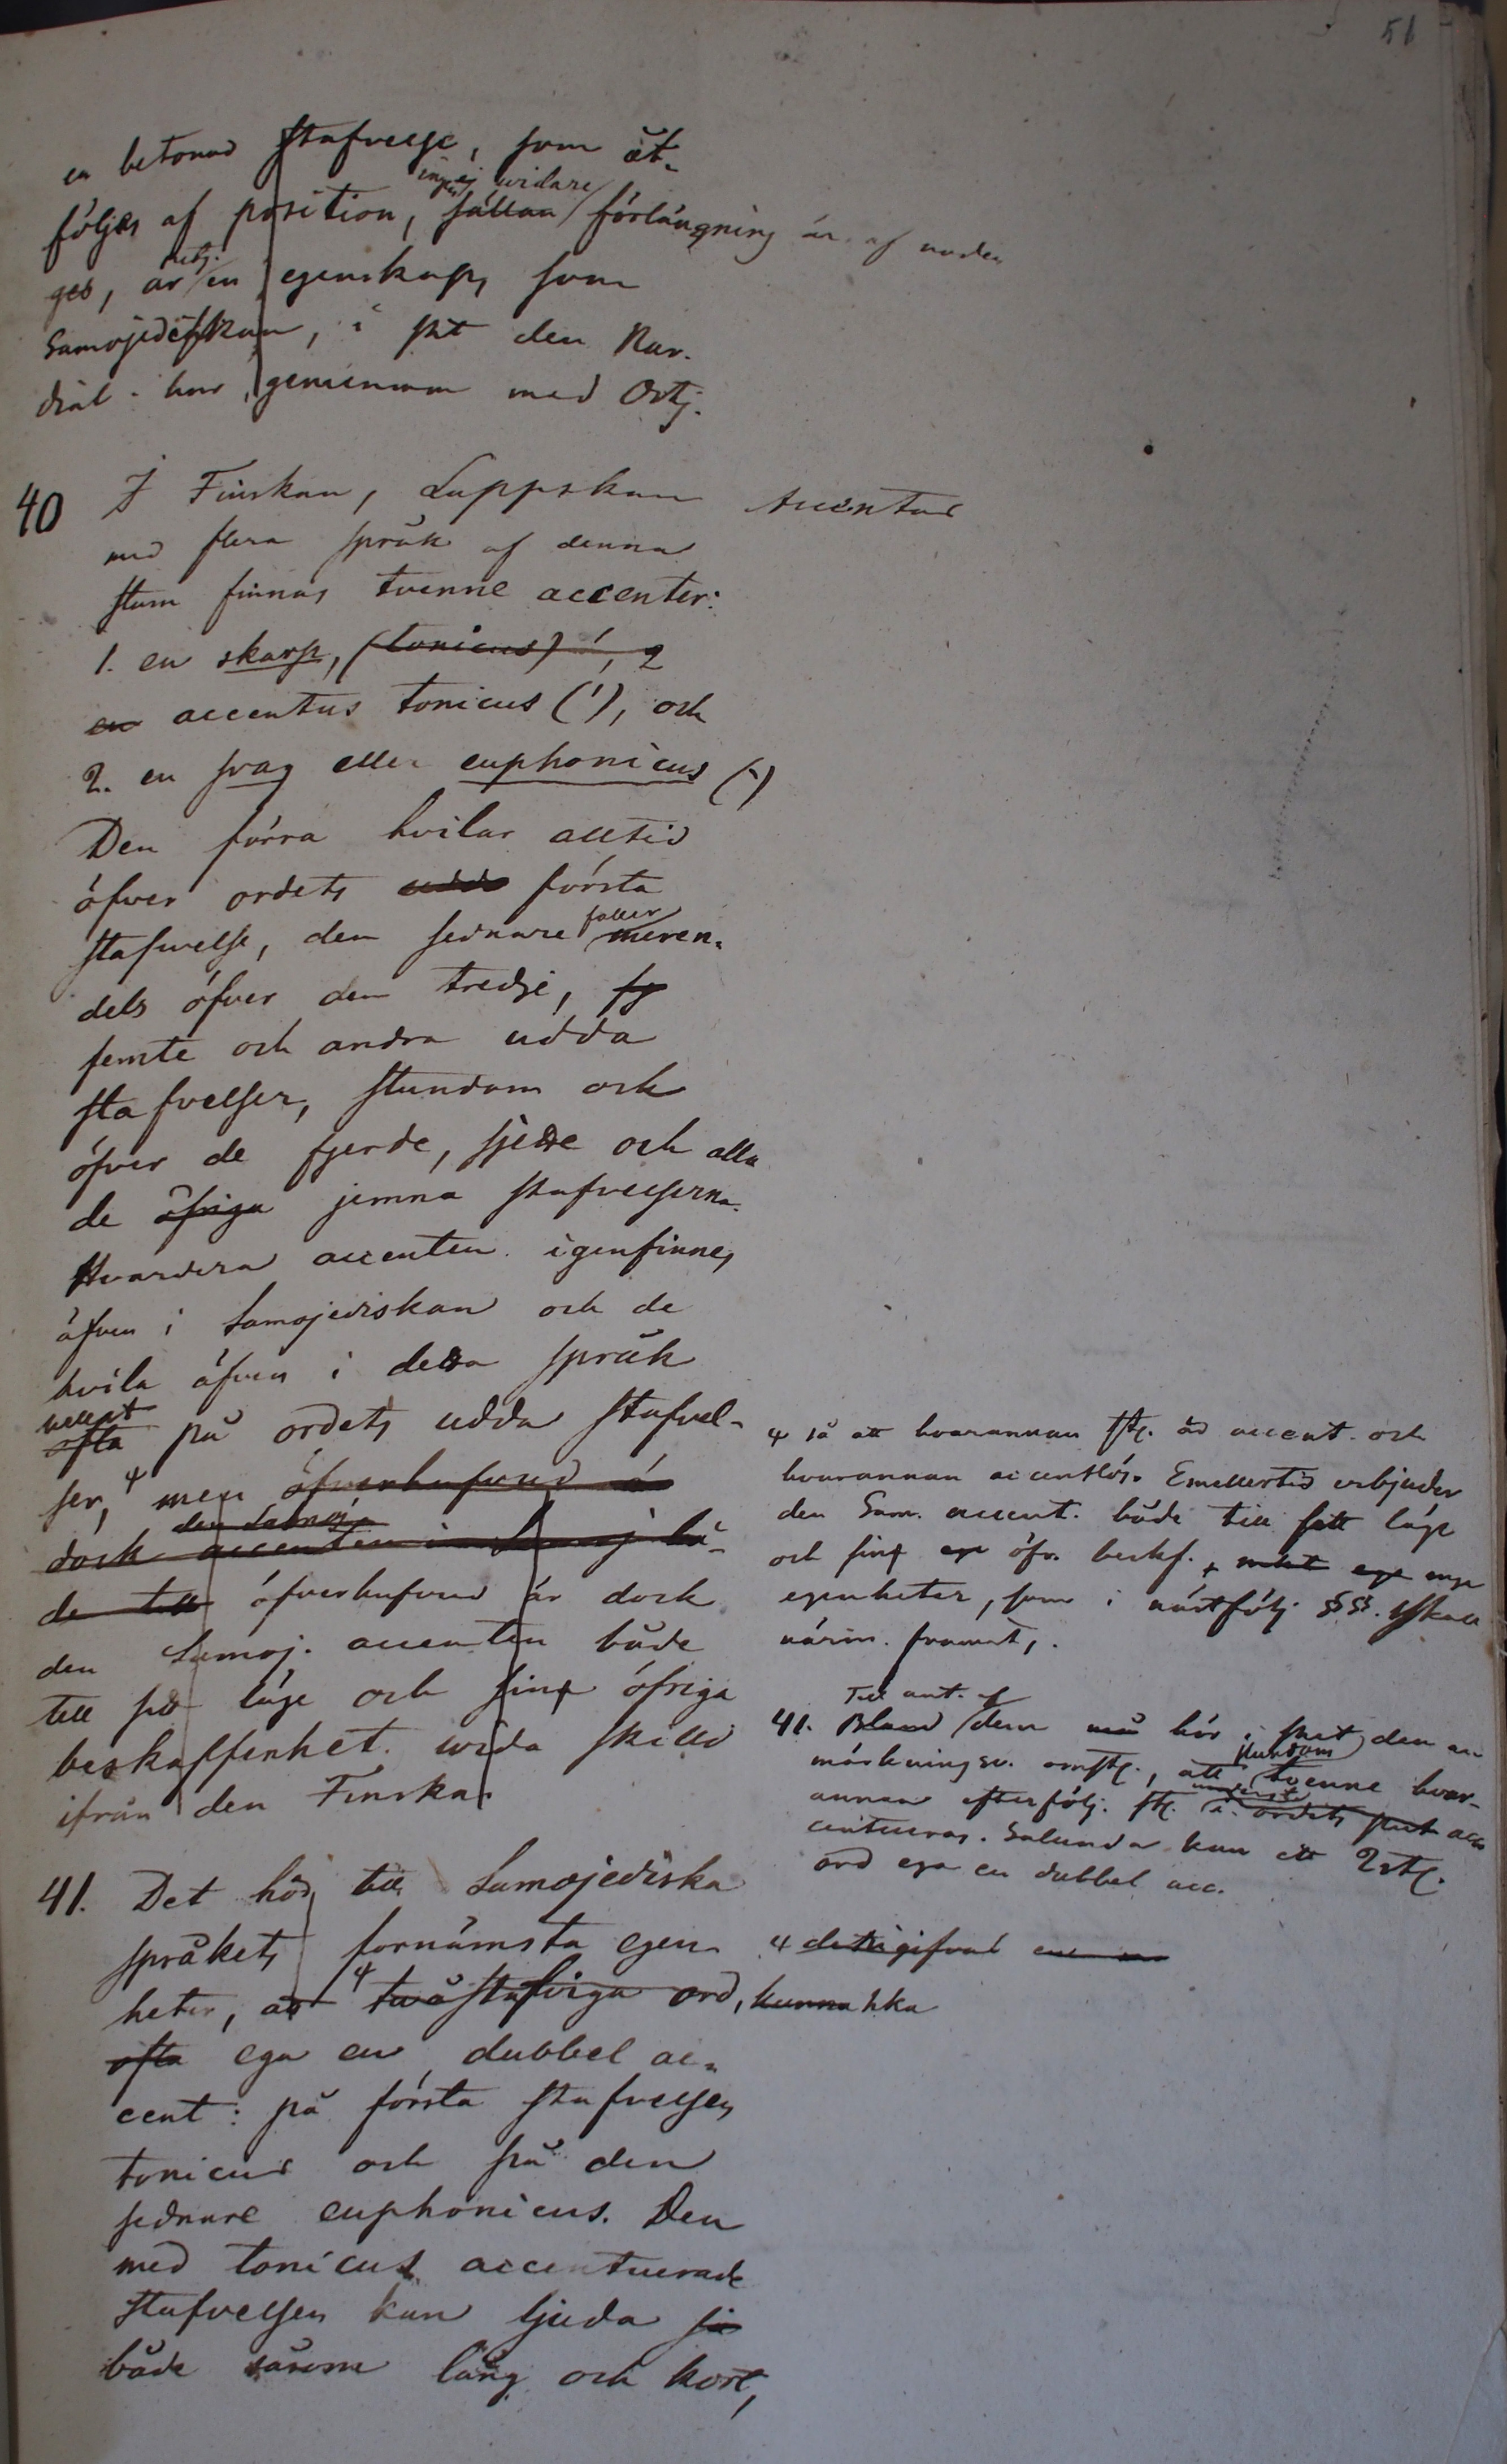 51
en betonad stafvelse, som åt-
ej vidare
följes af position, sällan förlängning är af noden
ges, är en egenskap, som
Samojediskan, i st den Nar.
dial. har gemensam med Ostj.
40 I Finskan, Lappskan
Accentus
med flera språk af denna
stam finnas tvenne accenter:
1. en skarp, (tonicus) ', 2
en accentus tonicus ('), och
2. en svag eller euphonicus (`)
Den förra hvilar alltid
öfver ordets udda första
faller
stafvelse, den sednare meren-
dels öfver den tredje, fj
femte och andra udda
stafvelser, stundom och
öfver de fjerde, sjette och alla
de öfriga jemna stafvelserna.
Hvardera accenten igenfinnes
äfven i Samojediskan och de
hvila äfven i dessa språk
ofta på ordets udda stafvel-
ser, men öfverhufvud är
den Samoj.
dock accenten i Samoj bå-
de till öfverhufvud är dock
den Samoj. accenten både
till sitt läge och sin öfriga
beskaffenhet vida skilld
ifrån den Finska.
så att hvarannan st. är accent. och
hvarannan accentlös. Emellertid erbjuder
den Sam. accent. både till sitt läge
och sin öfr. beskf.
egenheter, som i nästfölj §§. skall
närm. framst.
Till ant. af
41. Bland dem må hör i st den an-
stundom
märkningsv. omst., att tvenne hvar-
annan efterfölj. st. i ordets slut acc
centueras. Salunda kan ett 2st.
ord ega en dubbel acc.
41. Det hör till Samojediska
språkets fornämsta egen-
heter, att tvåstafviga ord, kunna
ofta ega en dubbel ac-
cent: på första stafvelsen
tonicus och på den
sednare euphonicus. Den
med tonicus accentuerade
stafvelsen kan ljuda så
både såsom lång och kort,